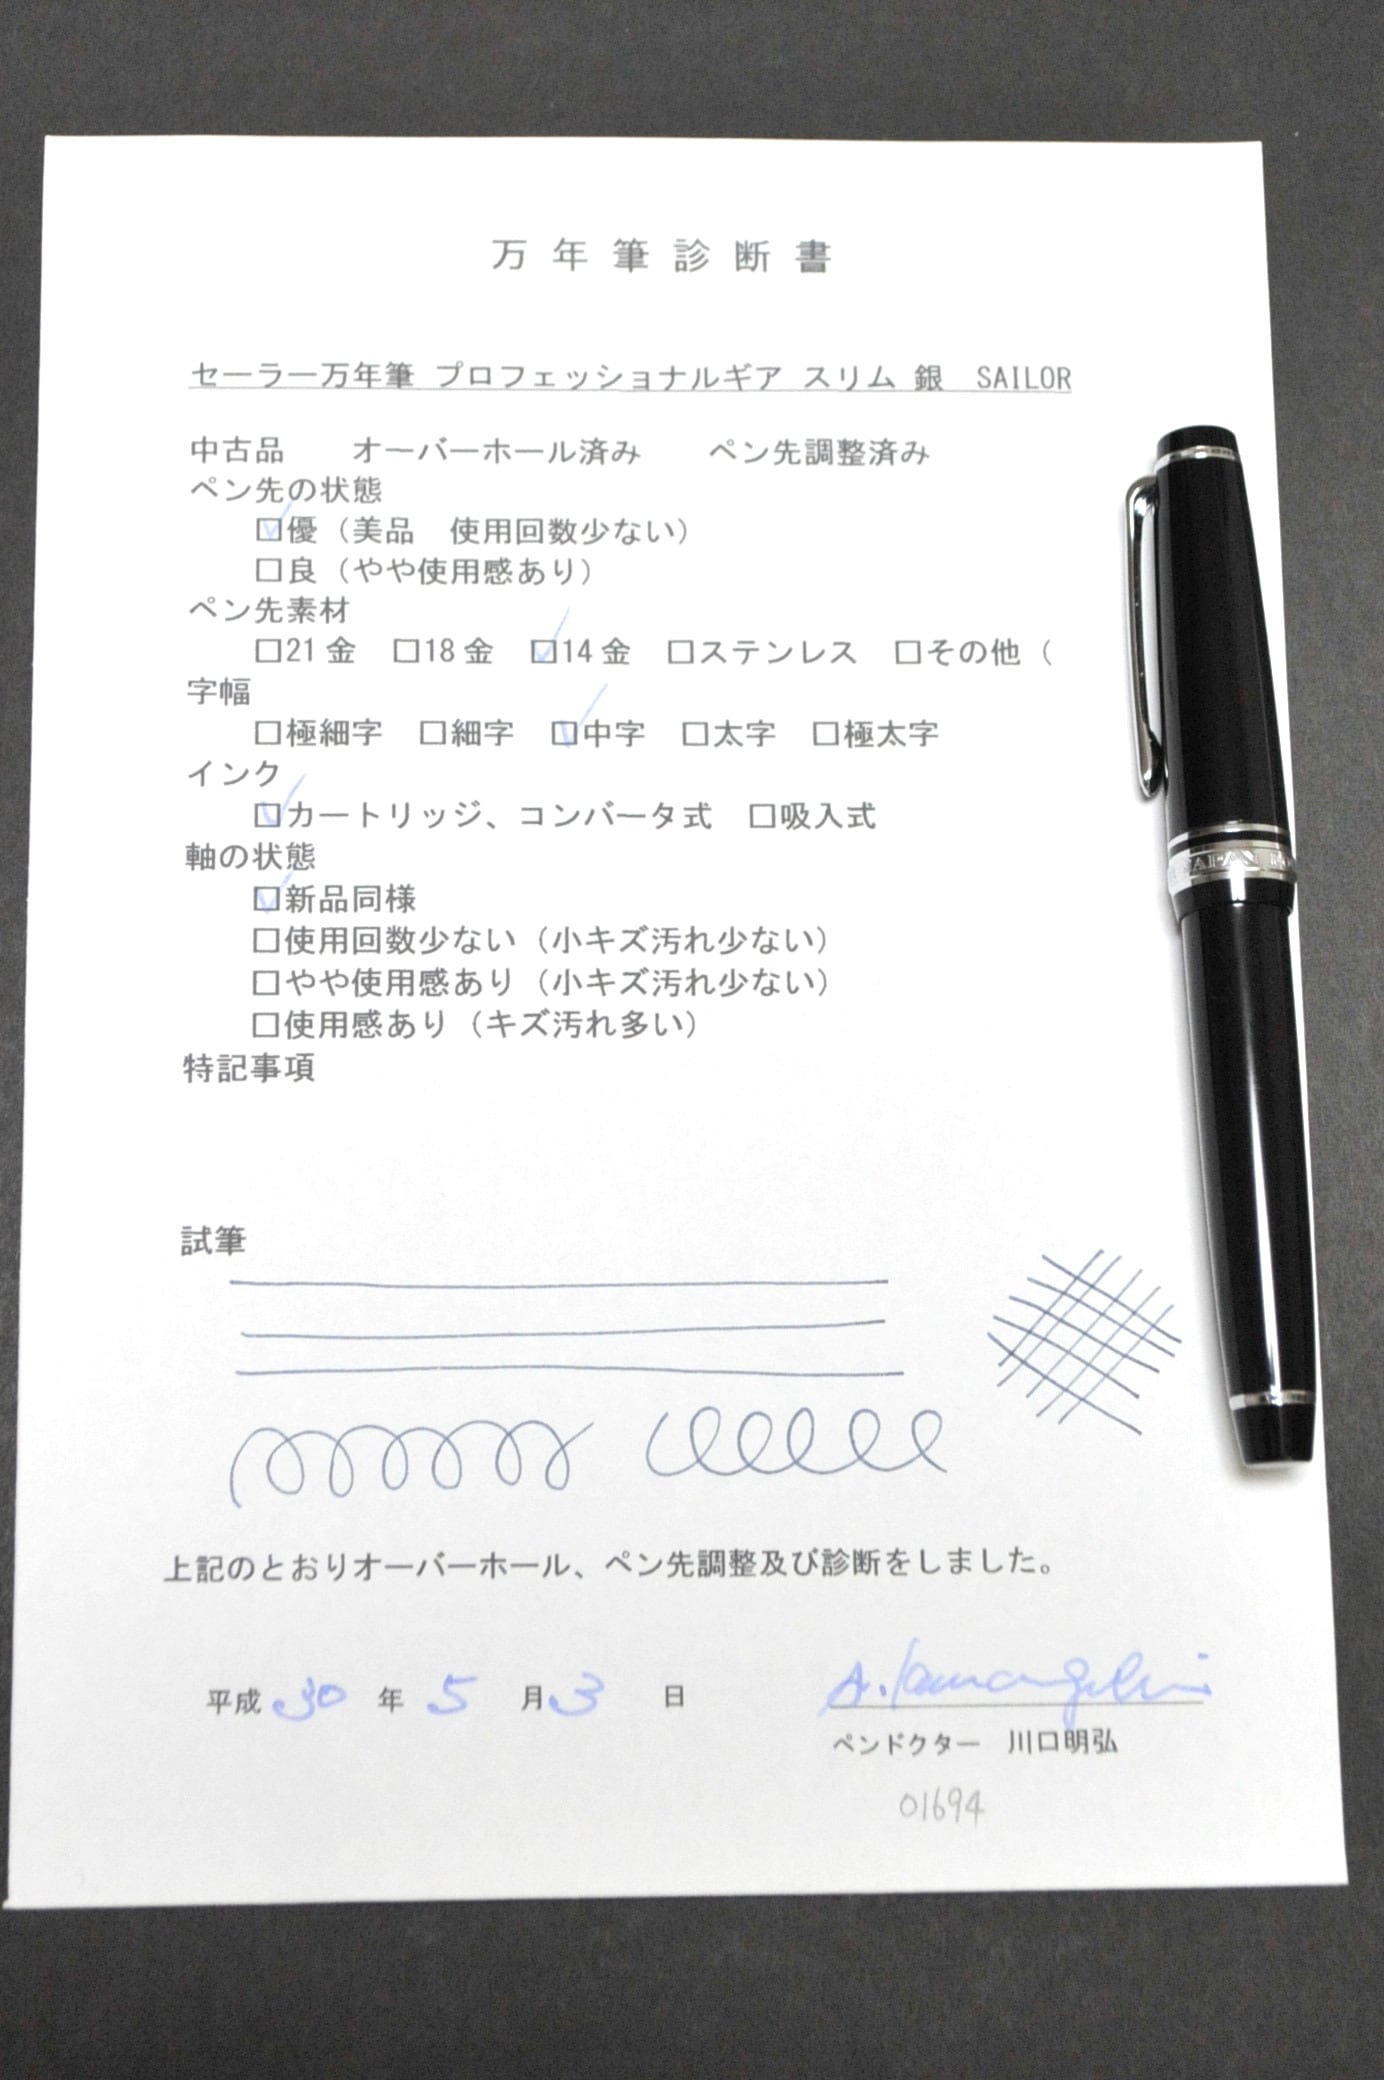 万年筆診断書
セーラー万年筆 プロフェッショナルギア スリム 銀 SAILOR
中古品 オーバーホール済み ペン先調整済み
ペン先の状態
☑優（美品 使用回数少ない）
□良（やや使用感あり）
ペン先素材
□21金 □18金 ☑14金 □ステンレス □その他（
字幅
□極細字 □細字 ☑中字 □太字 □極太字
インク
☑カートリッジ、コンバータ式 □吸入式
軸の状態
☑新品同様
□使用回数少ない（小キズ汚れ少ない）
□やや使用感あり（小キズ汚れ少ない）
□使用感あり（キズ汚れ多い）
特記事項
試筆
上記のとおりオーバーホール、ペン先調整及び診断をしました。
平成 30 年 5 月 3 日
ペンドクター 川口明弘
01694
JAPAN